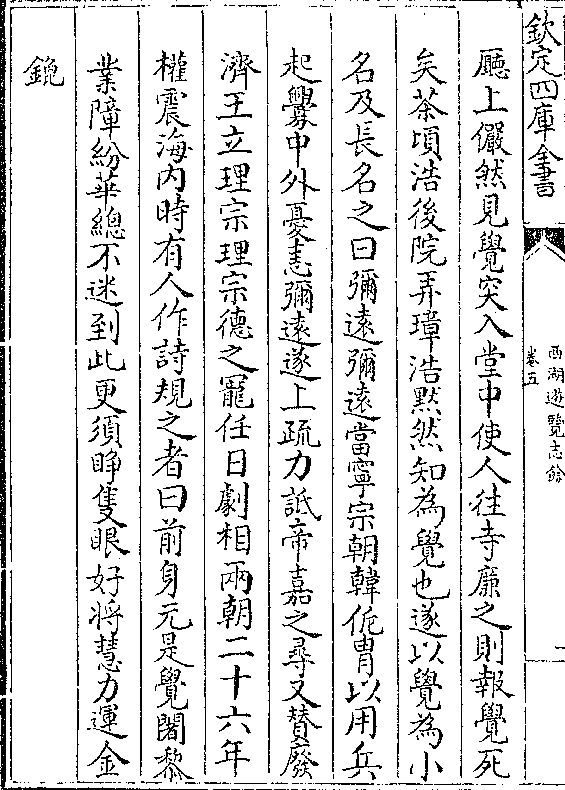 欽定四庫全書
西湖遊覽志餘
卷五
一
廳上儼然見覺突入堂中使人往寺廉之則報覺死
矣茶頃浩後院弄璋浩黙然知為覺也遂以覺為小
名及長名之曰彌遠彌遠當寧宗朝韓侂胄以用兵
起釁中外憂恚彌遠遂上疏力詆帝嘉之尋又賛廢
濟王立理宗理宗德之寵任日劇相兩朝二十六年
權震海内時有人作詩規之者曰前身元是覺闍黎
業障紛華總不迷到此更須睁隻眼好将慧力運金
鎞